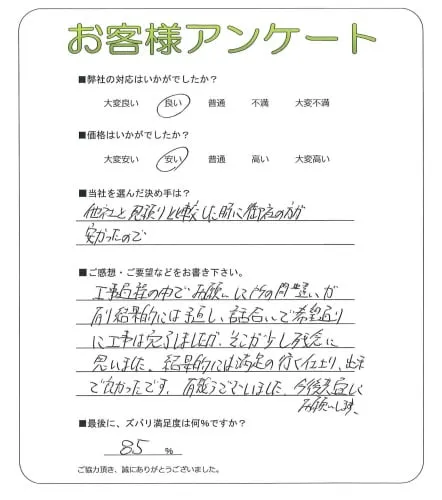 お客様アンケート
■弊社の対応はいかがでしたか?
大変良い 良い 普通 不満 大変不満
■価格はいかがでしたか?
大変安い 安い 普通 高い 大変高い
■当社を選んだ決め手は?
他社と見積りと比較した時に御社の方が
安かったので
■ご感想・ご要望などをお書き下さい。
工事過程の中でお願いした所の間違いが
有り結果的には手直し、話合いで希望通り
に工事は完了しましたが、そこが少し残念に
思いました。結果的には満足の行く仕上り、出来
で良かったです。有難うございました。今後共宜しく
お願いします。
■最後に、ズバリ満足度は何%ですか?
85 %
ご協力頂き、誠にありがとうございました。